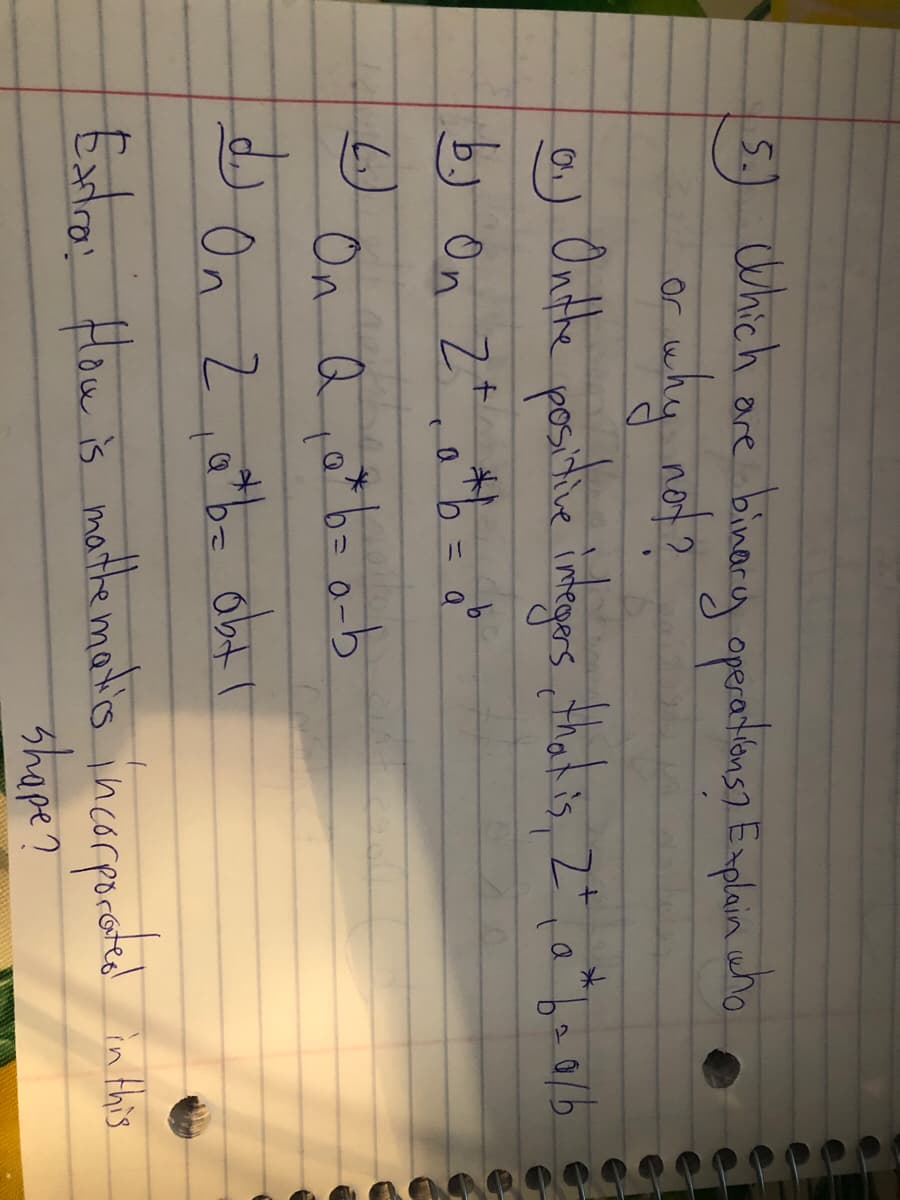 5.) Which are binary operations? Explain who
or why not?
a.) On the positive integers, that is, Z⁺, a*b = a/b
b.) On Z⁺, a*b = aᵇ
c.) On Q, a*b = a-b
d.) On Z, a*b = ab+1
Extra: How is mathematics incorporated in this
shape?